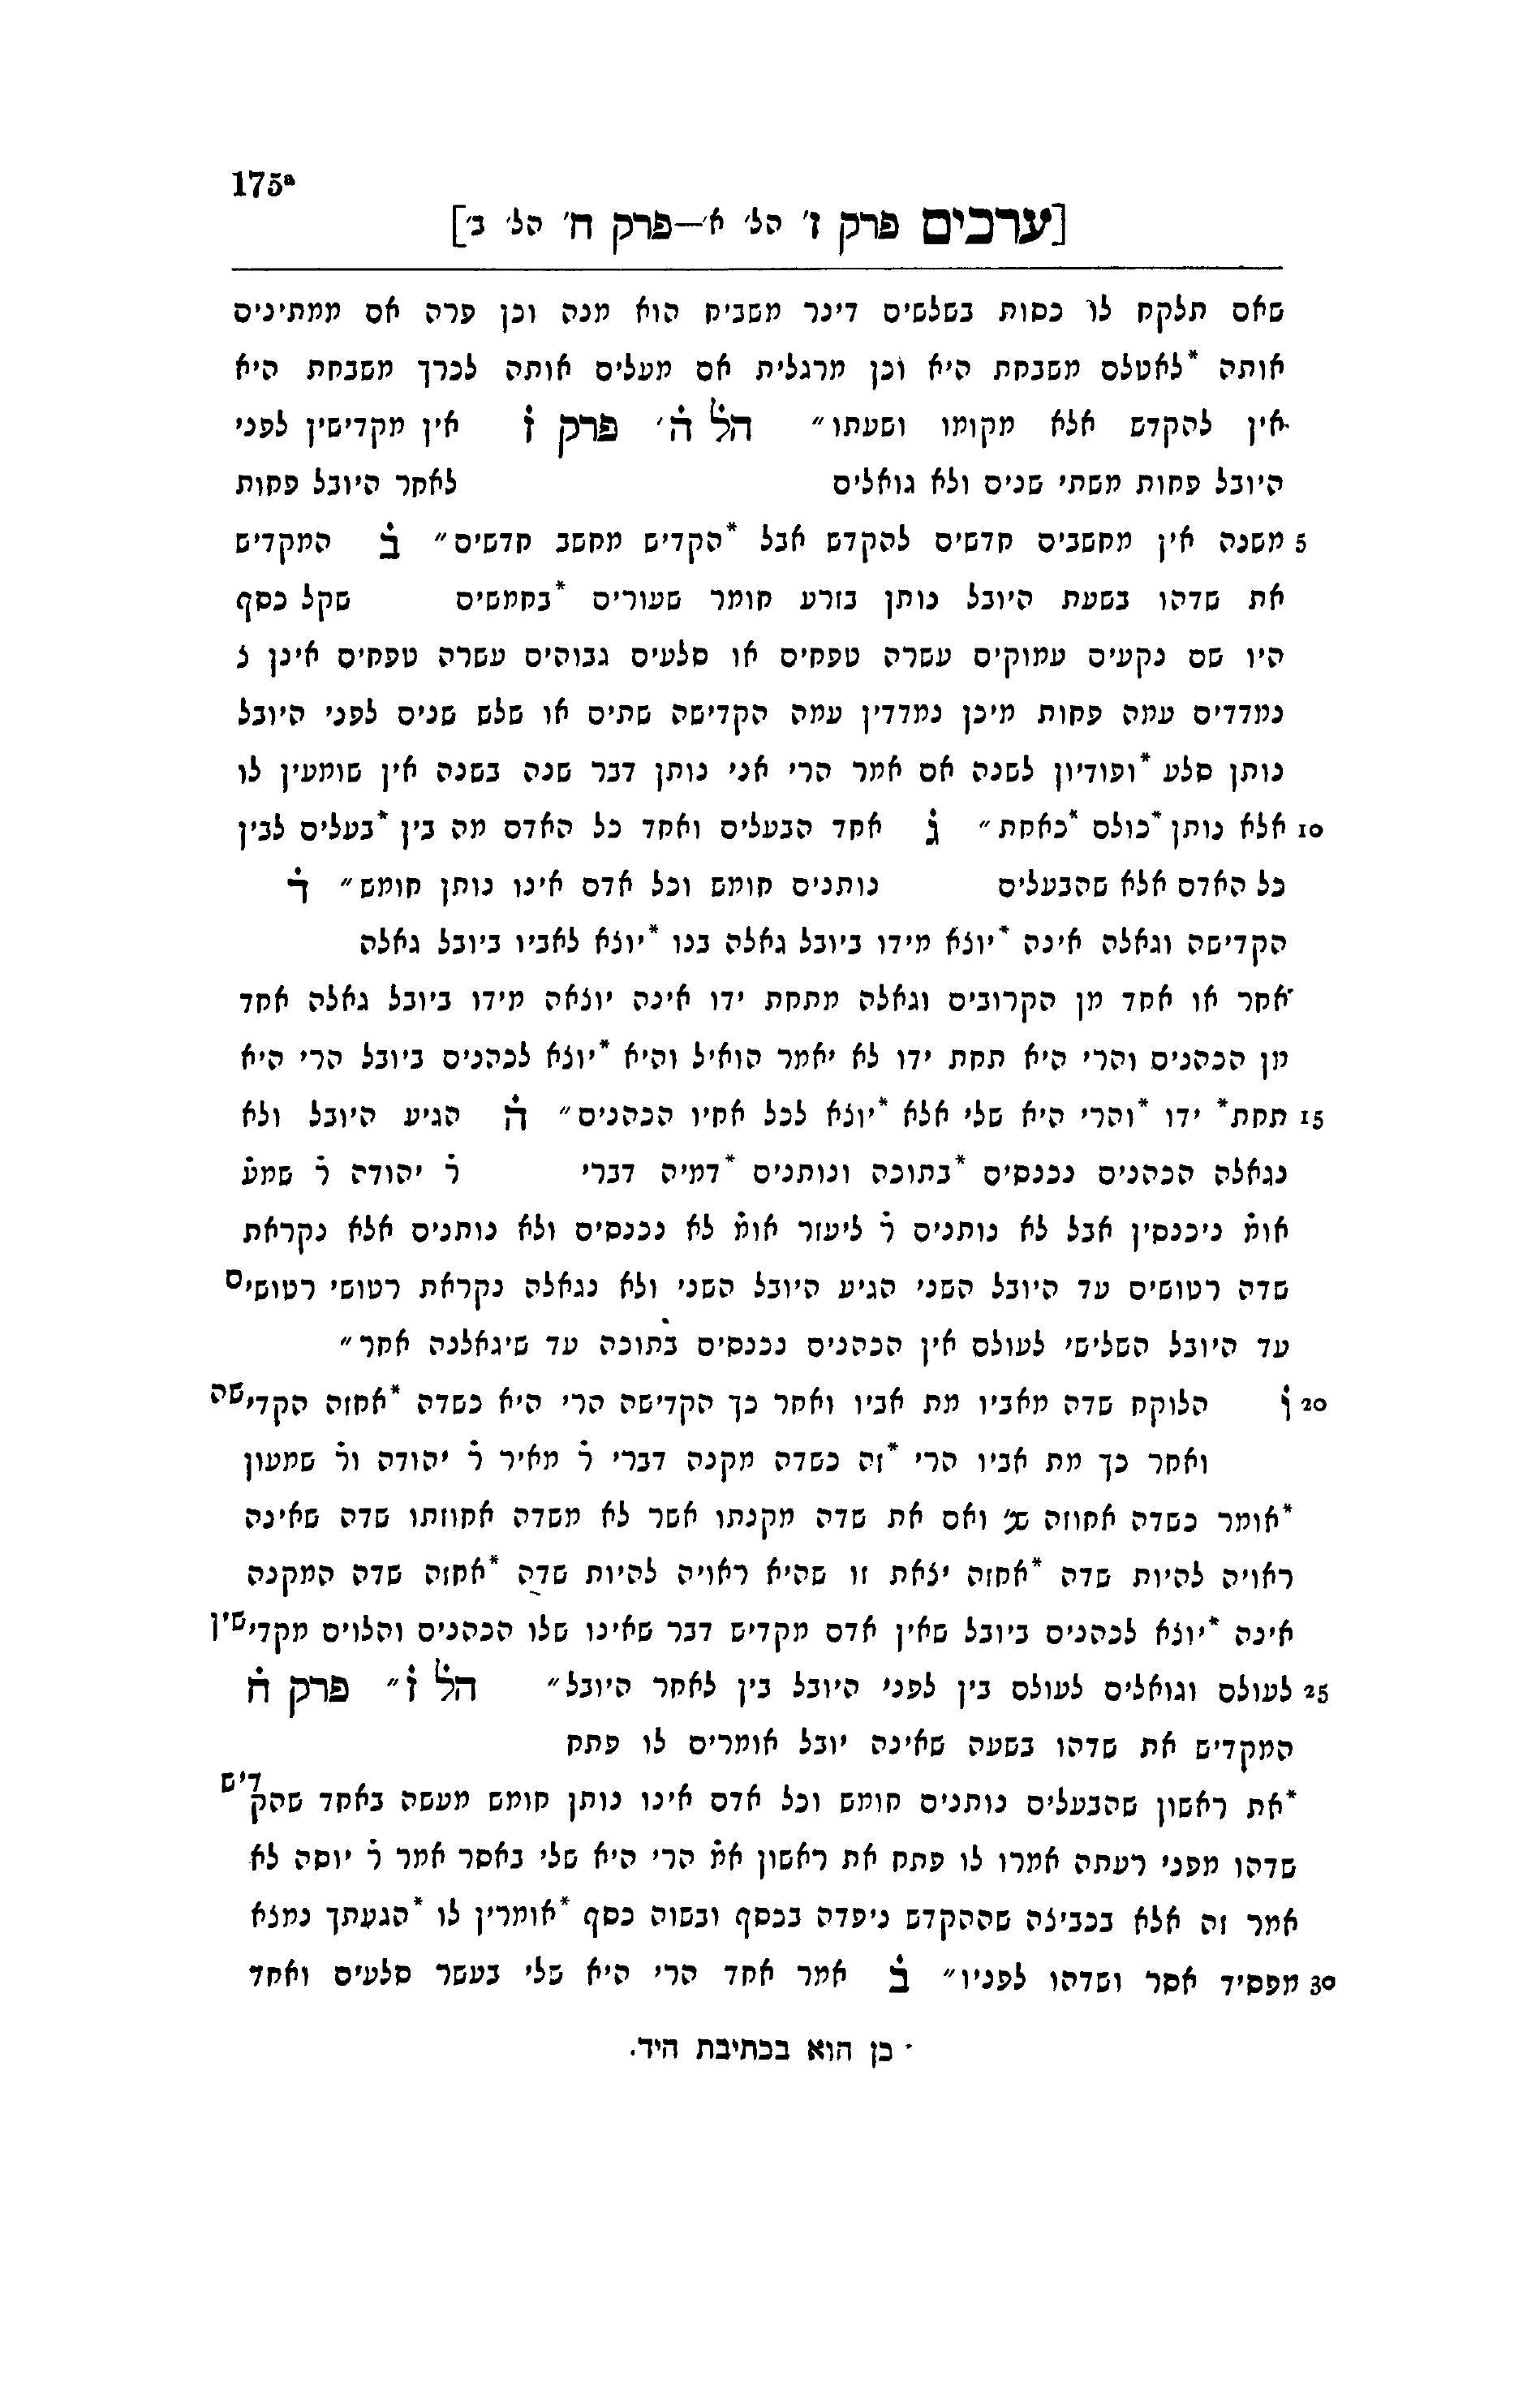 175a
[ערכים פרק ז' הל' א'—פרק ח' הל' ב']
שאם תלקח לו כסות בשלשים דינר משביח הוא מנה וכן פרה אם ממתינים
אותה *לאטלם משבחת היא וכן מרגלית אם מעלים אותה לכרך משבחת היא
אין להקדש אלא מקומו ושעתו״ הל ה׳ פרק ז אין מקדישין לפני
היובל פחות משתי שנים ולא גואלים לאחר היובל פחות
5 משנה אין מחשבים חדשים להקדש אבל *הקדיש מחשב חדשים״ ב המקדיש
את שדהו בשעת היובל נותן בזרע חומר שעורים *בחמשים שקל כסף
היו שם נקעים עמוקים עשרה טפחים או סלעים גבוהים עשרה טפחים אינן נ
נמדדים עמה פחות מיכן נמדדין עמה הקדישה שתים או שלש שנים לפני היובל
נותן סלע *ופודיון לשנה אם אמר הרי אני נותן דבר שנה בשנה אין שומעין לו
10 אלא נותן *כולם *כאחת״ ג אחד הבעלים ואחד כל האדם מה בין *בעלים לבין
כל האדם אלא שהבעלים נותנים חומש וכל אדם אינו נותן חומש״ ד
הקדישה וגאלה אינה *יוצא מידו ביובל גאלה בנו *יוצא לאביו ביובל גאלה
אחר או אחד מן הקרובים וגאלה מתחת ידו אינה יוצאה מידו ביובל גאלה אחד
מן הכהנים והרי היא תחת ידו לא יאמר הואיל והיא *יוצא לכהנים ביובל הרי היא
15 תחת* ידו *והרי היא שלי אלא *יוצא לכל אחיו הכהנים״ ה הגיע היובל ולא
נגאלה הכהנים נכנסים *בתוכה ונותנים *דמיה דברי ר̇ יהודה ר̇ שמע̇
אומ̇ ניכנסין אבל לא נותנים ר̇ ליעזר אומ̇ לא נכנסים ולא נותנים אלא נקראת
שדה רטושים עד היובל השני הגיע היובל השני ולא נגאלה נקראת רטושי רטושים
עד היובל השלישי לעולם אין הכהנים נכנסים בתוכה עד שיגאלנה אחר״
20 ו הלוקח שדה מאביו מת אביו ואחר כך הקדישה הרי היא כשדה *אחזה הקדישה
ואחר כך מת אביו הרי *זה כשדה מקנה דברי ר̇ מאיר ר̇ יהודה ור̇ שמעון
*אומר כשדה אחוזה שנ׳ ואם את שדה מקנתו אשר לא משדה אחוזתו שדה שאינה
ראויה להיות שדה *אחזה יצאת זו שהיא ראויה להיות שדה *אחזה שדה המקנה
אינה *יוצא לכהנים ביובל שאין אדם מקדיש דבר שאינו שלו הכהנים והלוים מקדישין
25 לעולם וגואלים לעולם בין לפני היובל בין לאחר היובל״ הל ז״ פרק ח
המקדיש את שדהו בשעה שאינה יובל אומרים לו פתח
*את ראשון שהבעלים נותנים חומש וכל אדם אינו נותן חומש מעשה באחד שהקדיש
שדהו מפני רעתה אמרו לו פתח את ראשון אמ̇ הרי היא שלי באסר אמר ר̇ יוסה לא
אמר זה אלא בכביצה שההקדש ניפדה בכסף ובשוה כסף *אומרין לו *הגעתך נמצא
30 מפסיד אסר ושדהו לפניו״ ב אמר אחד הרי היא שלי בעשר סלעים ואחד
· כן הוא בכתיבת היד.